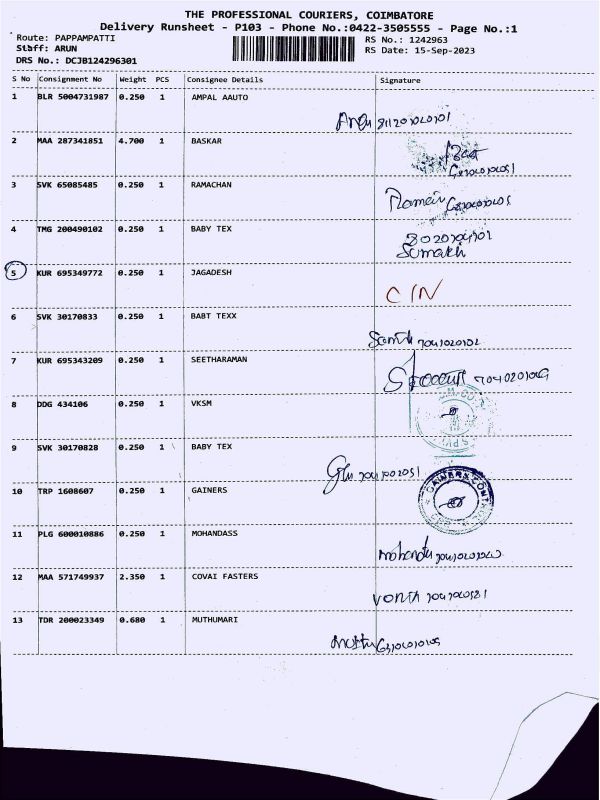 THE PROFESSIONAL COURIERS, COIMBATORE
Delivery Runsheet - P103 - Phone No.:0422-3505555 - Page No.:1
Route: PAPPAMPATTI RS No.: 1242963
Staff: ARUN RS Date: 15-Sep-2023
DRS No.: DCJB124296301
S No Consignment No Weight PCS Consignee Details Signature
1 BLR 5004731987 0.250 1 AMPAL AAUTO
2 MAA 287341851 4.700 1 BASKAR
3 SVK 65085485 0.250 1 RAMACHAN
4 TMG 200490102 0.250 1 BABY TEX
5 KUR 695349772 0.250 1 JAGADESH
CIN
6 SVK 30170833 0.250 1 BABT TEXX
7 KUR 695343209 0.250 1 SEETHARAMAN
8 DDG 434106 0.250 1 VKSM
9 SVK 30170828 0.250 1 BABY TEX
10 TRP 1608607 0.250 1 GAINERS
11 PLG 600010886 0.250 1 MOHANDASS
12 MAA 571749937 2.350 1 COVAI FASTERS
13 TDR 200023349 0.680 1 MUTHUMARI